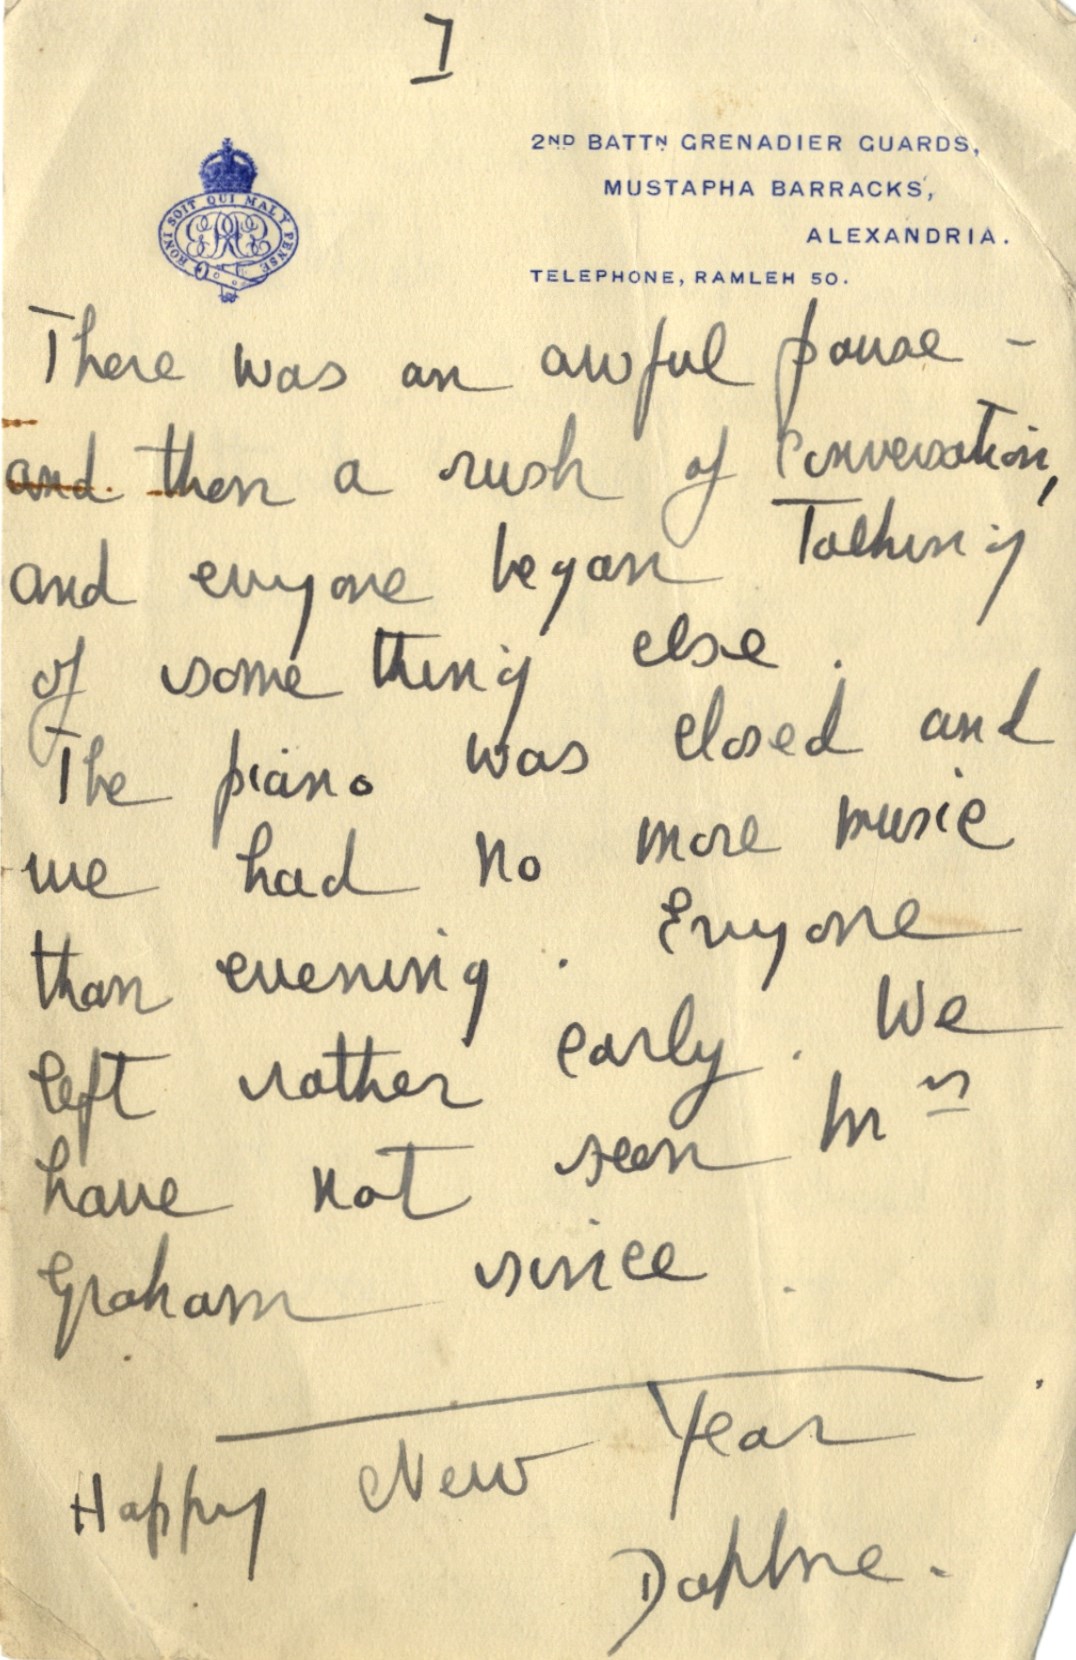 7
HONI SOIT QUI MAL Y PENSE
2ND BATTN GRENADIER GUARDS,
MUSTAPHA BARRACKS,
ALEXANDRIA.
TELEPHONE, RAMLEH 50.
There was an awful pause -
and then a rush of Conversation,
and evryone began Talking
of some thing else.
The piano was closed and
we had no more music
than evening. Evryone
left rather early. We
have not seen Mrs
Graham since.
Happy New Year
Daphne.